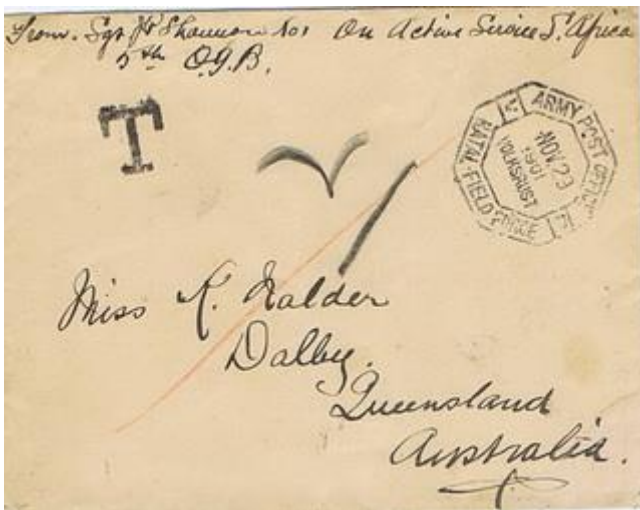 From. Sgt Shannon No1 On Active Service S. Africa
5th Q.I.B.
T
ARMY POST OFFICE
NATAL FIELD FORCE
NOV 23
1901
VOLKSRUST
Miss K. Halder
Dalby.
Queensland
Australia.